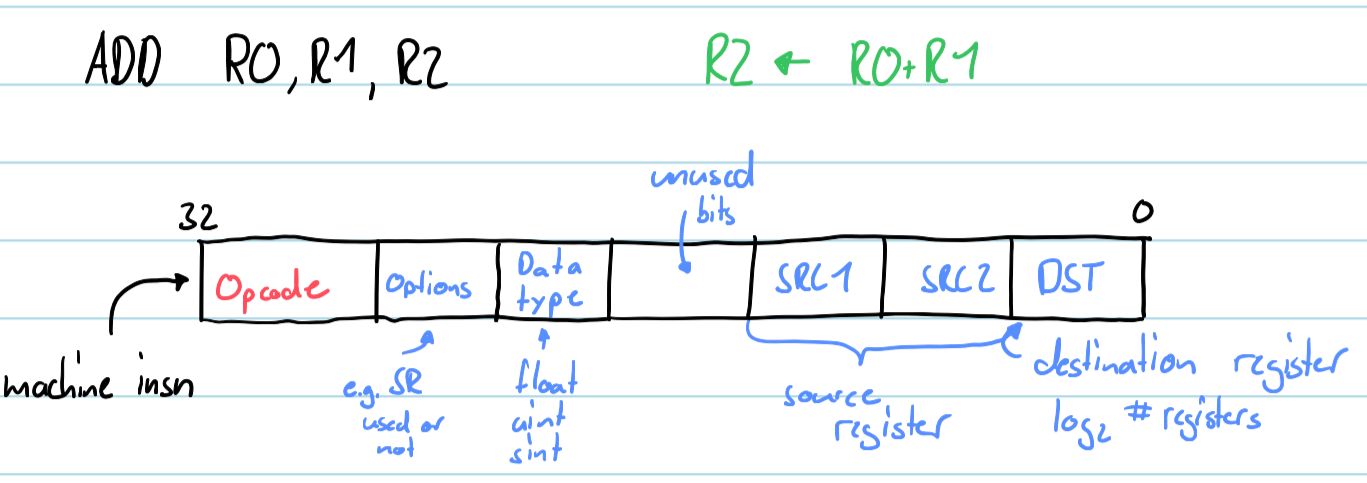 ADD R0, R1, R2
R2 ← R0+R1
unused
bits
32
0
Opcode
Options
Data
type
SRC1
SRC2
DST
machine insn
e.g. SR
used or
not
float
uint
sint
source
register
destination register
log₂ # registers